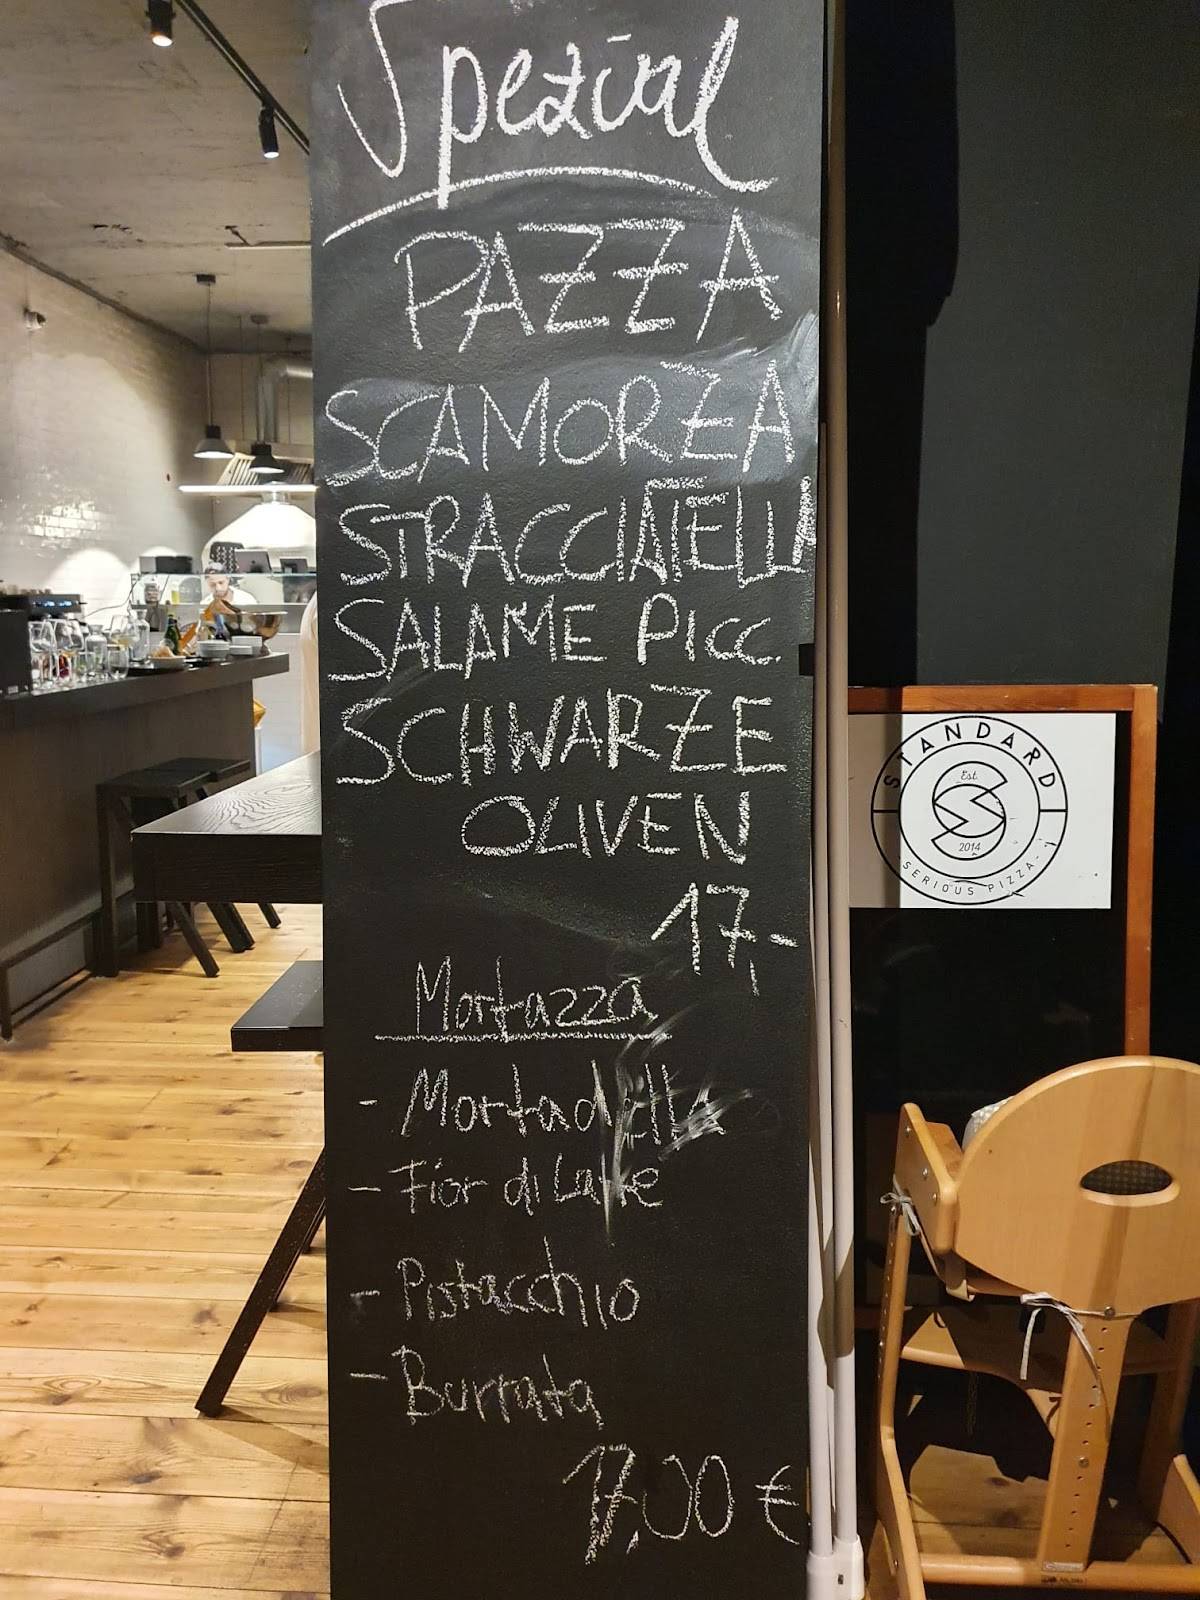 Spezial
PAZZA
SCAMORZA
STRACCIATELLA
SALAME PICC.
SCHWARZE
OLIVEN
17,-
Mortazza
- Mortadella
- Fior di Latte
- Pistacchio
- Burrata
17,00 €
STANDARD
Est.
S
2014
SERIOUS PIZZA